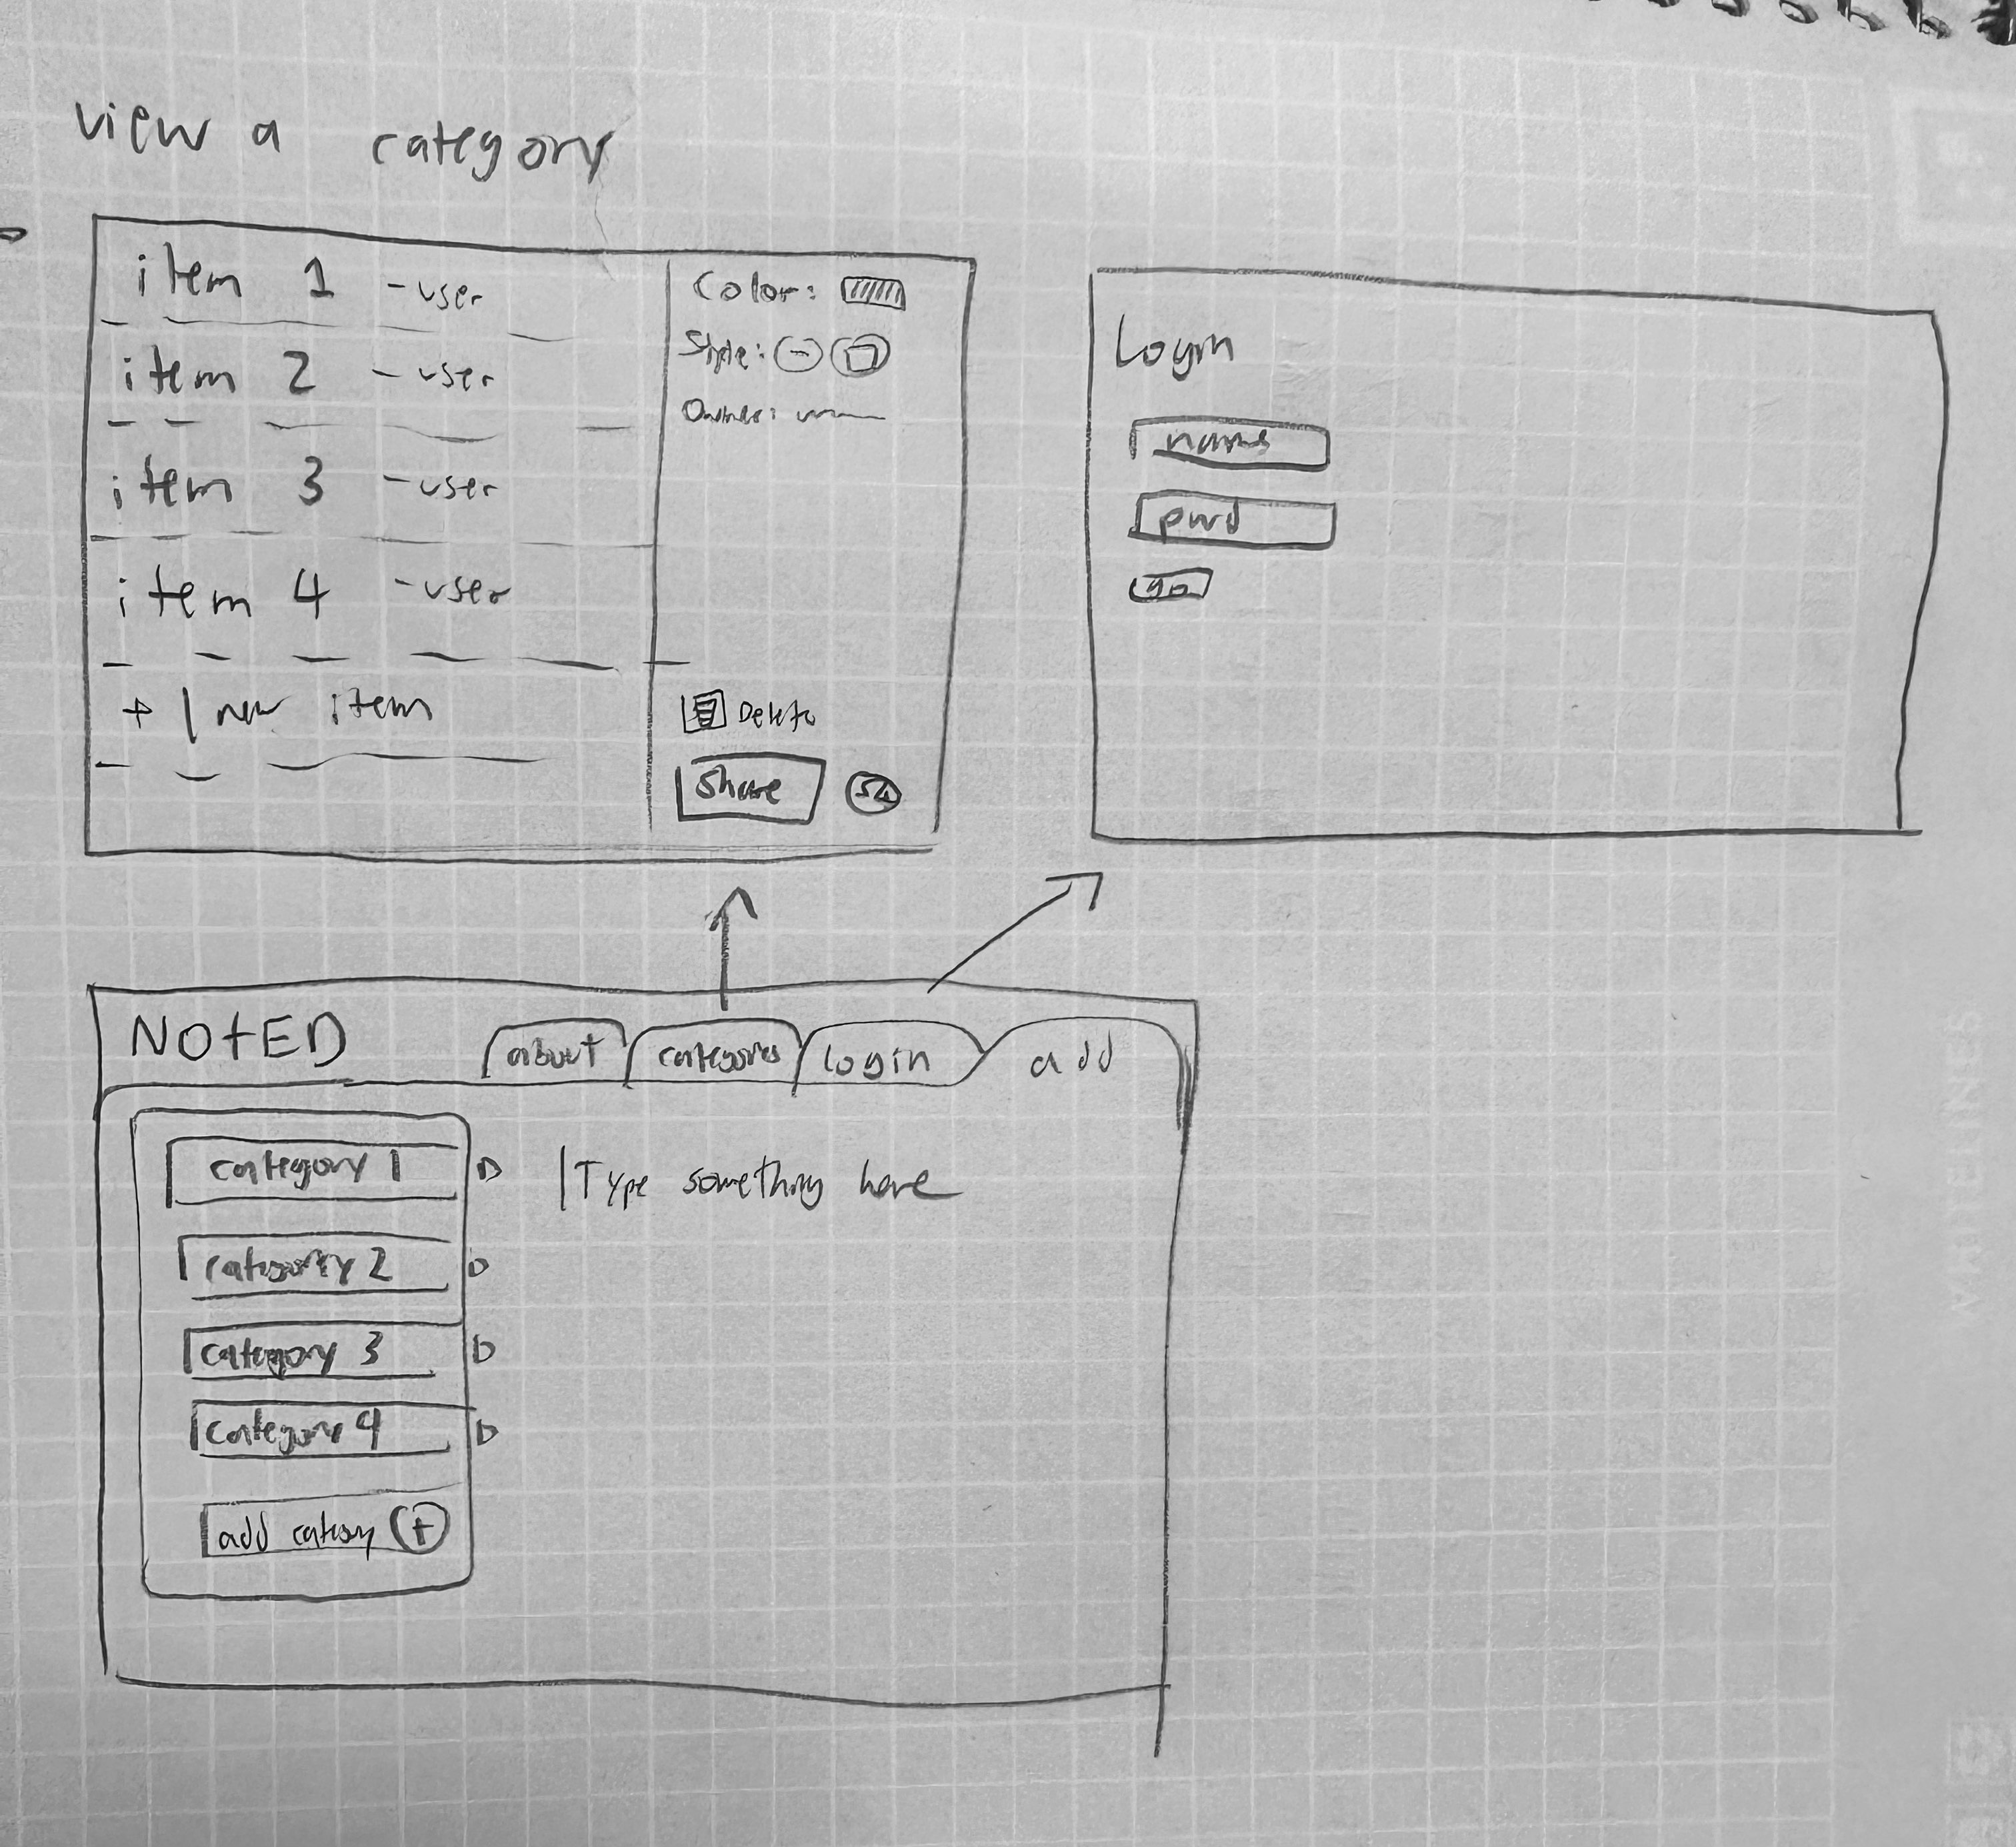 view a category
item 1 -user
item 2 -user
item 3 -user
item 4 -user
+ | new item
Color:
Style:
Owner:
Delete
Share
Login
name
pwd
go
NOtED
about
categories
login
add
category 1
category 2
category 3
category 4
add category +
|Type something here